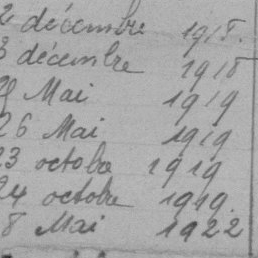 2 décembre 1918.
3 décembre 1918
Mai 1919
26 Mai 1919
23 octobre 1919
24 octobre 1919.
8 Mai 1922